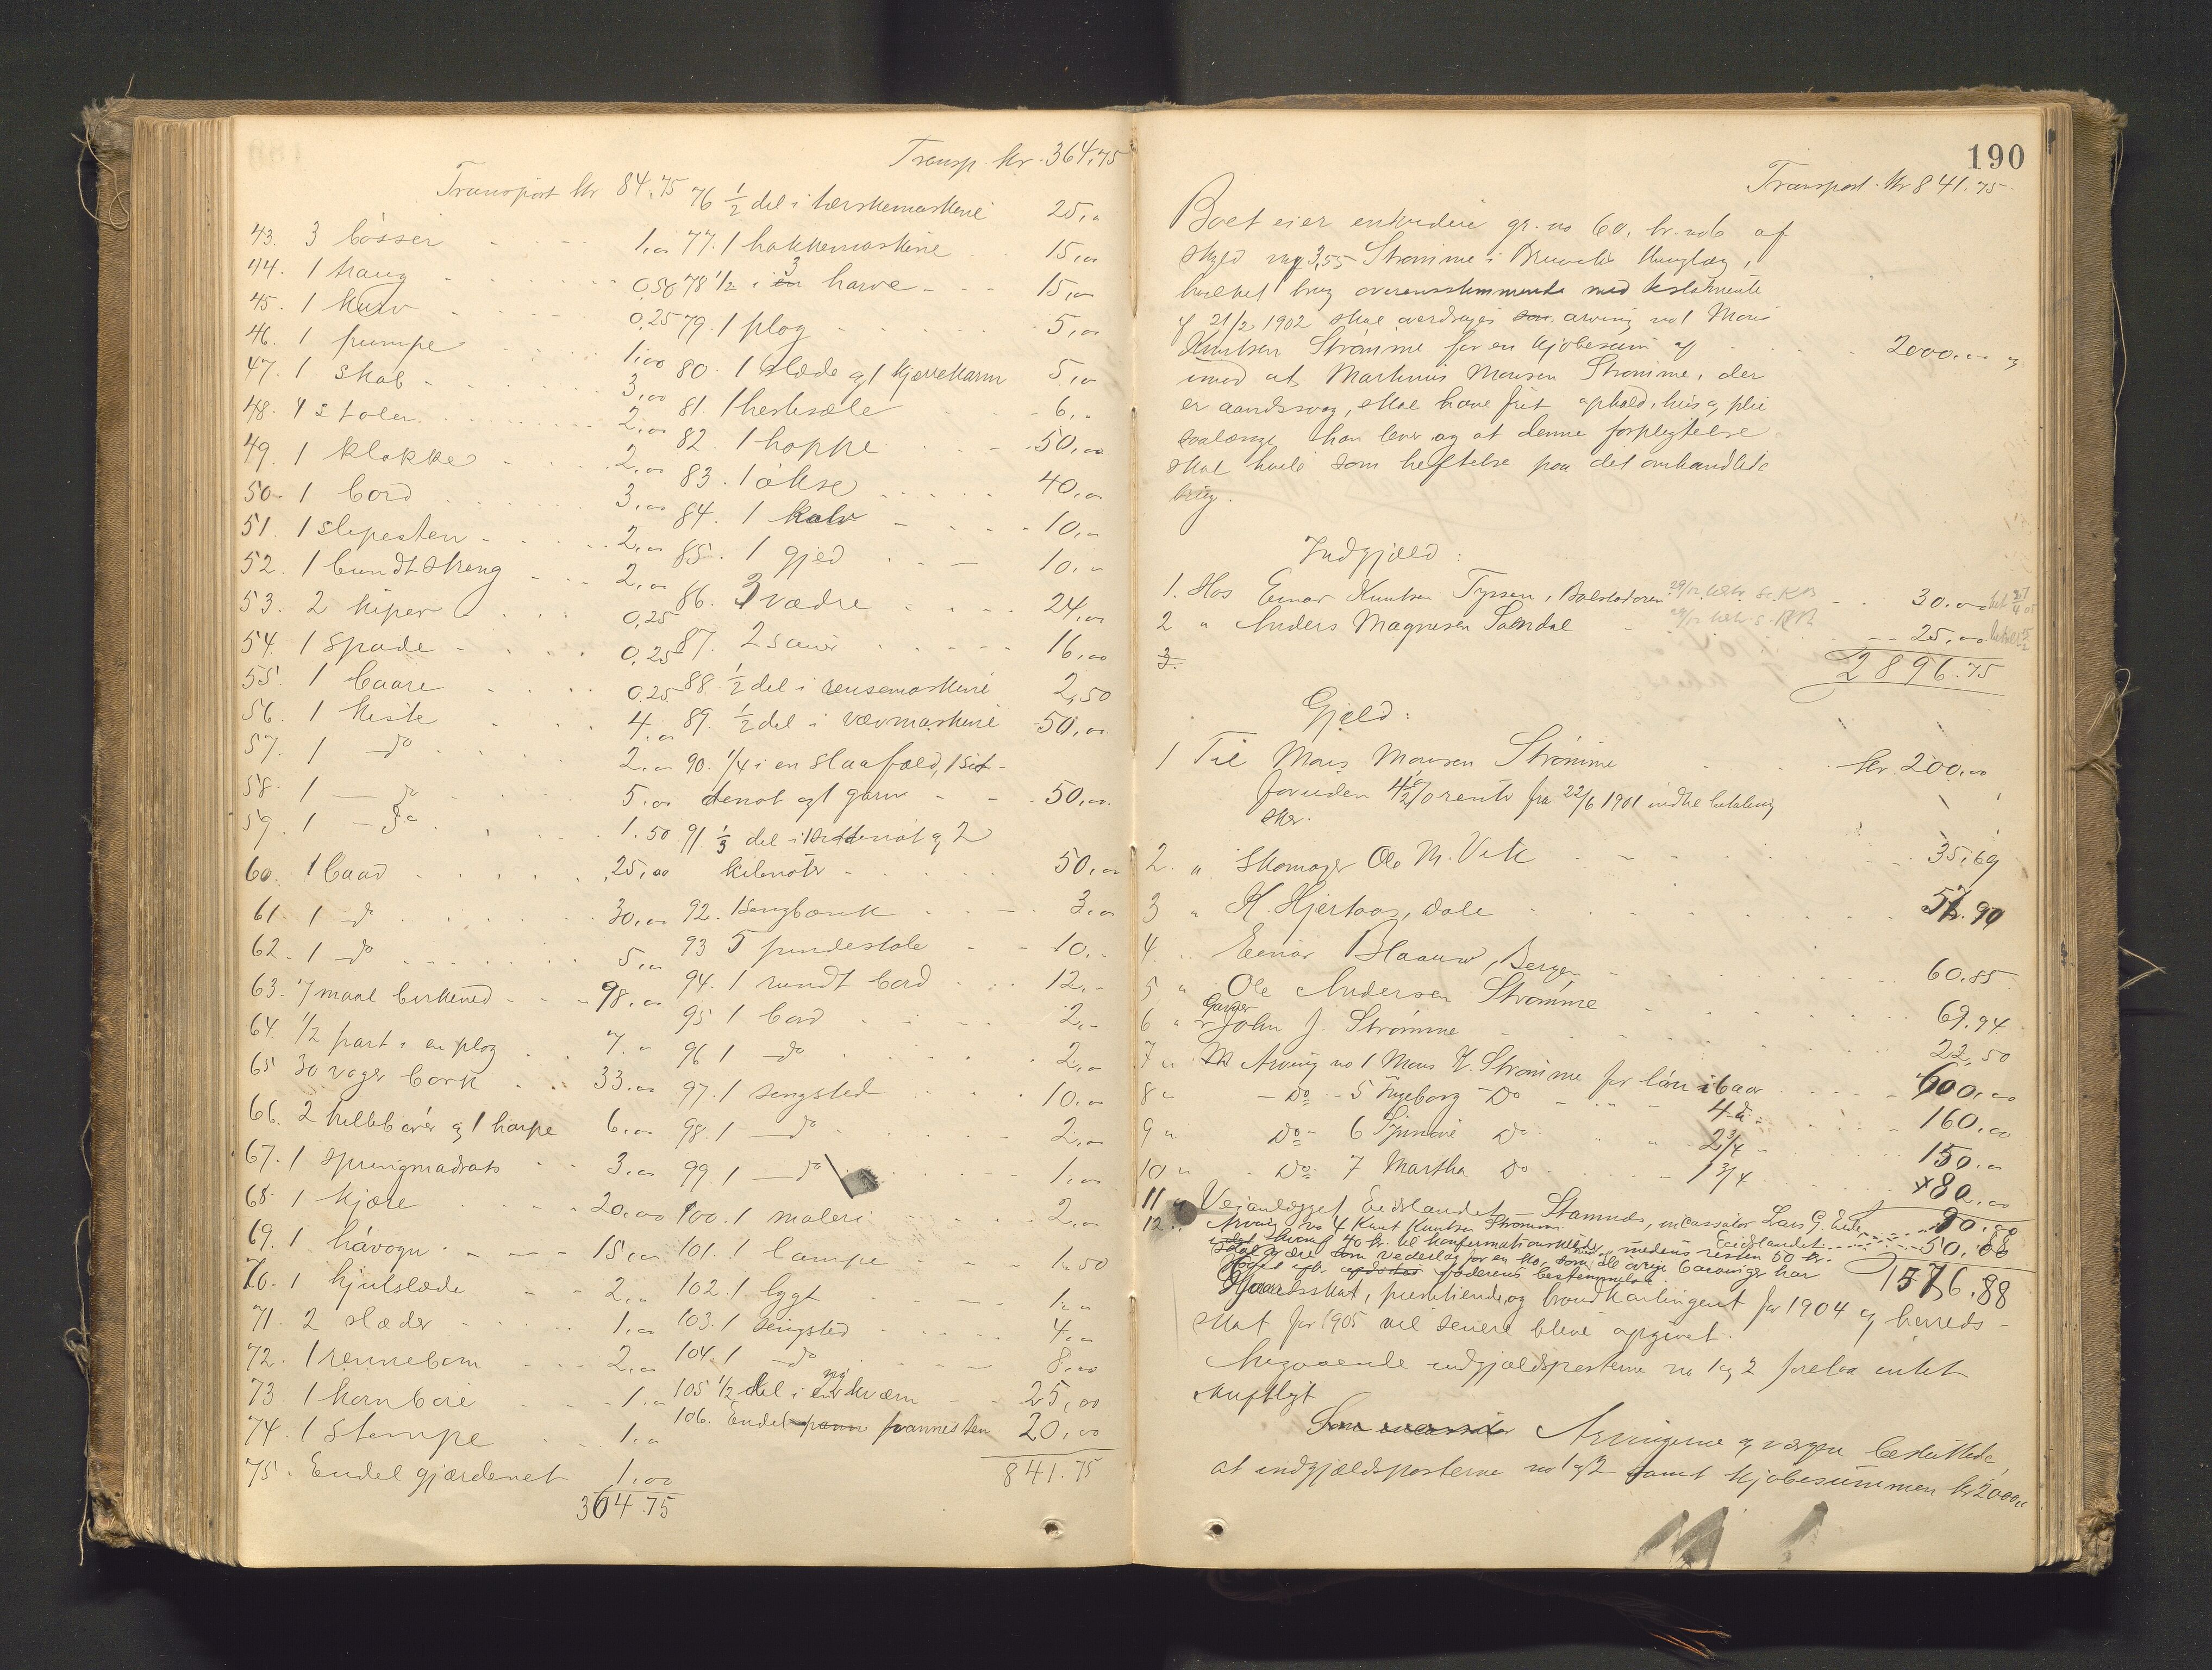 Transport kr 84.75
43. 3 bøsser 1,00
44. 1 traug 0,50
45. 1 kurv 0,25
46. 1 pumpe 1,00
47. 1 skab 3,00
48. 4 stoler 2,00
49. 1 klokke 2,00
50. 1 bord 3,00
51. 1 slipesten 2,00
52. 1 bundtstreng 2,00
53. 2 kiper 0,25
54. 1 spade 0,25
55. 1 baare 0,25
56. 1 kiste 4,00
57. 1 do 2,00
58. 1 do 5,00
59. 1 do 1.50
60. 1 baad 25,00
61 1 do 30,00
62. 1 do 5,00
63. 7 maal birkeved 98,00
64. 1/2 part i en plog 7,00
65 30 voger bark 33,00
66. 2 hellebører og 1 harpe 6,00
67. 1 springmadrats 3,00
68. 1 kjære 20,00
69. 1 høvogn 15,00
70. 1 hjulslæde 2,00
71. 2 slæder 1,00
72. 1 rennebom 2,00
73. 1 kornbøie 1,00
74. 1 stampe 1,00
75. Endel gjærdenet 1,00
364.75
Transp. kr. 364,75
76 1/2 del i tærskemaskine 25,00
77. 1 hakkemaskine 15,00
78 1/2 i 3 harve 15,00
79. 1 plog 5,00
80. 1 slæde og 1 kjærrekarm 5,00
81 1 hestesæle 6,00
82. 1 hoppe 50,00
83. 1 okse 40,00
84. 1 kalv 10,00
85. 1 gjed 10,00
86. 3 vædre 24,00
87. 2 sauer 16,00
88. 1/2 del i rensemaskine 2,50
89. 1/2 del i vævmaskine 50,00
90. 1/4 i en slaafæld, 1 sil-
denot og 1 garn 50,00
91. 1/3 del i sildenot og 2
kilenøter 50,00
92. 1 sengbænk 3,00
93 5 pindestole 10,00
94. 1 rundt bord 12,00
95 1 bord 2,00
96 1 do 2,00
97. 1 sengsted 10,00
98. 1 do 2,00
99. 1 do 1,00
100. 1 maleri 2,00
101. 1 lampe 1.50
102. 1 lygt 1,00
103. 1 sengsted 4,00
104. 1 do 8,00
105 1/2 del i en kværn 25,00
106. Endel pannesten 20,00
841.75
190
Transport. Kr 841.75.
Boet eier endvidere gr. no 60. br. no 6 af
skyld mk 3,55 Strømme i Bruvik thinglag,
hvilket brug overensstemmende med testamente
af 21/2 1902 skal overdrages arving no 1 Mons
Knutsen Strømme for en kjøbesum af 2000,00 og
imod at Martinus Monsen Strømme, der
er aandssvag, skal have frit ophold, hus og pleie
saalænge han lever og at denne forpligtelse
skal hvile som heftelse paa det omhandlede
brug.
Indgjæld:
1. Hos Einar Knutsen Tyssen, Bolstadøren 30,00
2 " Anders Magnesen Samdal 25,00
3.
2896.75
Gjæld:
1 Til Mons Monsen Strømme kr. 200,00
foruden 4 1/2 % rente fra 22/6 1901 indtil betaling
sker.
2. " Skomager Ole M. Vik 35,69
3 " K. Hjertaas, Dale 57.90
4. " Einar Blaauw, Bergen 60,85
5 " Ole Andersen Strømme 69.94
6 " Garver John J. Strømme 22,50
7 " Arving no 1 Mons K. Strømme for lån i 6 aar 600,00
8 " Do 5 Ingeborg Do 4 do 160,00
9 " Do 6 Do 2 3/4 150,00
10 " Do 7 Martha Do 1 3/4 80,00
11 " Veianlægget Eidslandet - Stamnes, incassator Lars G. Eide, Eidslandet 90.00
12 " Arving no 4 Knut Knutsen Strømme 50,00
40 kr. til konfirmationsklæder, medens resten 50 kr.
skal være vederlag for en ko, som alle øvrige arvinger har
faaet efter faderens bestemmelse.
1576,88
Gaardsskat, prestetiende og brandkontingent for 1904 og herreds-
skat for 1905 vil senere blive opgivet.
Angaaende indgjældsposterne no 1 og 2 forelaa intet
skriftligt
Arvingerne og værgen besluttede,
at indgjældsposterne no 1 og 2 samt kjøbesummen kr 2000,00